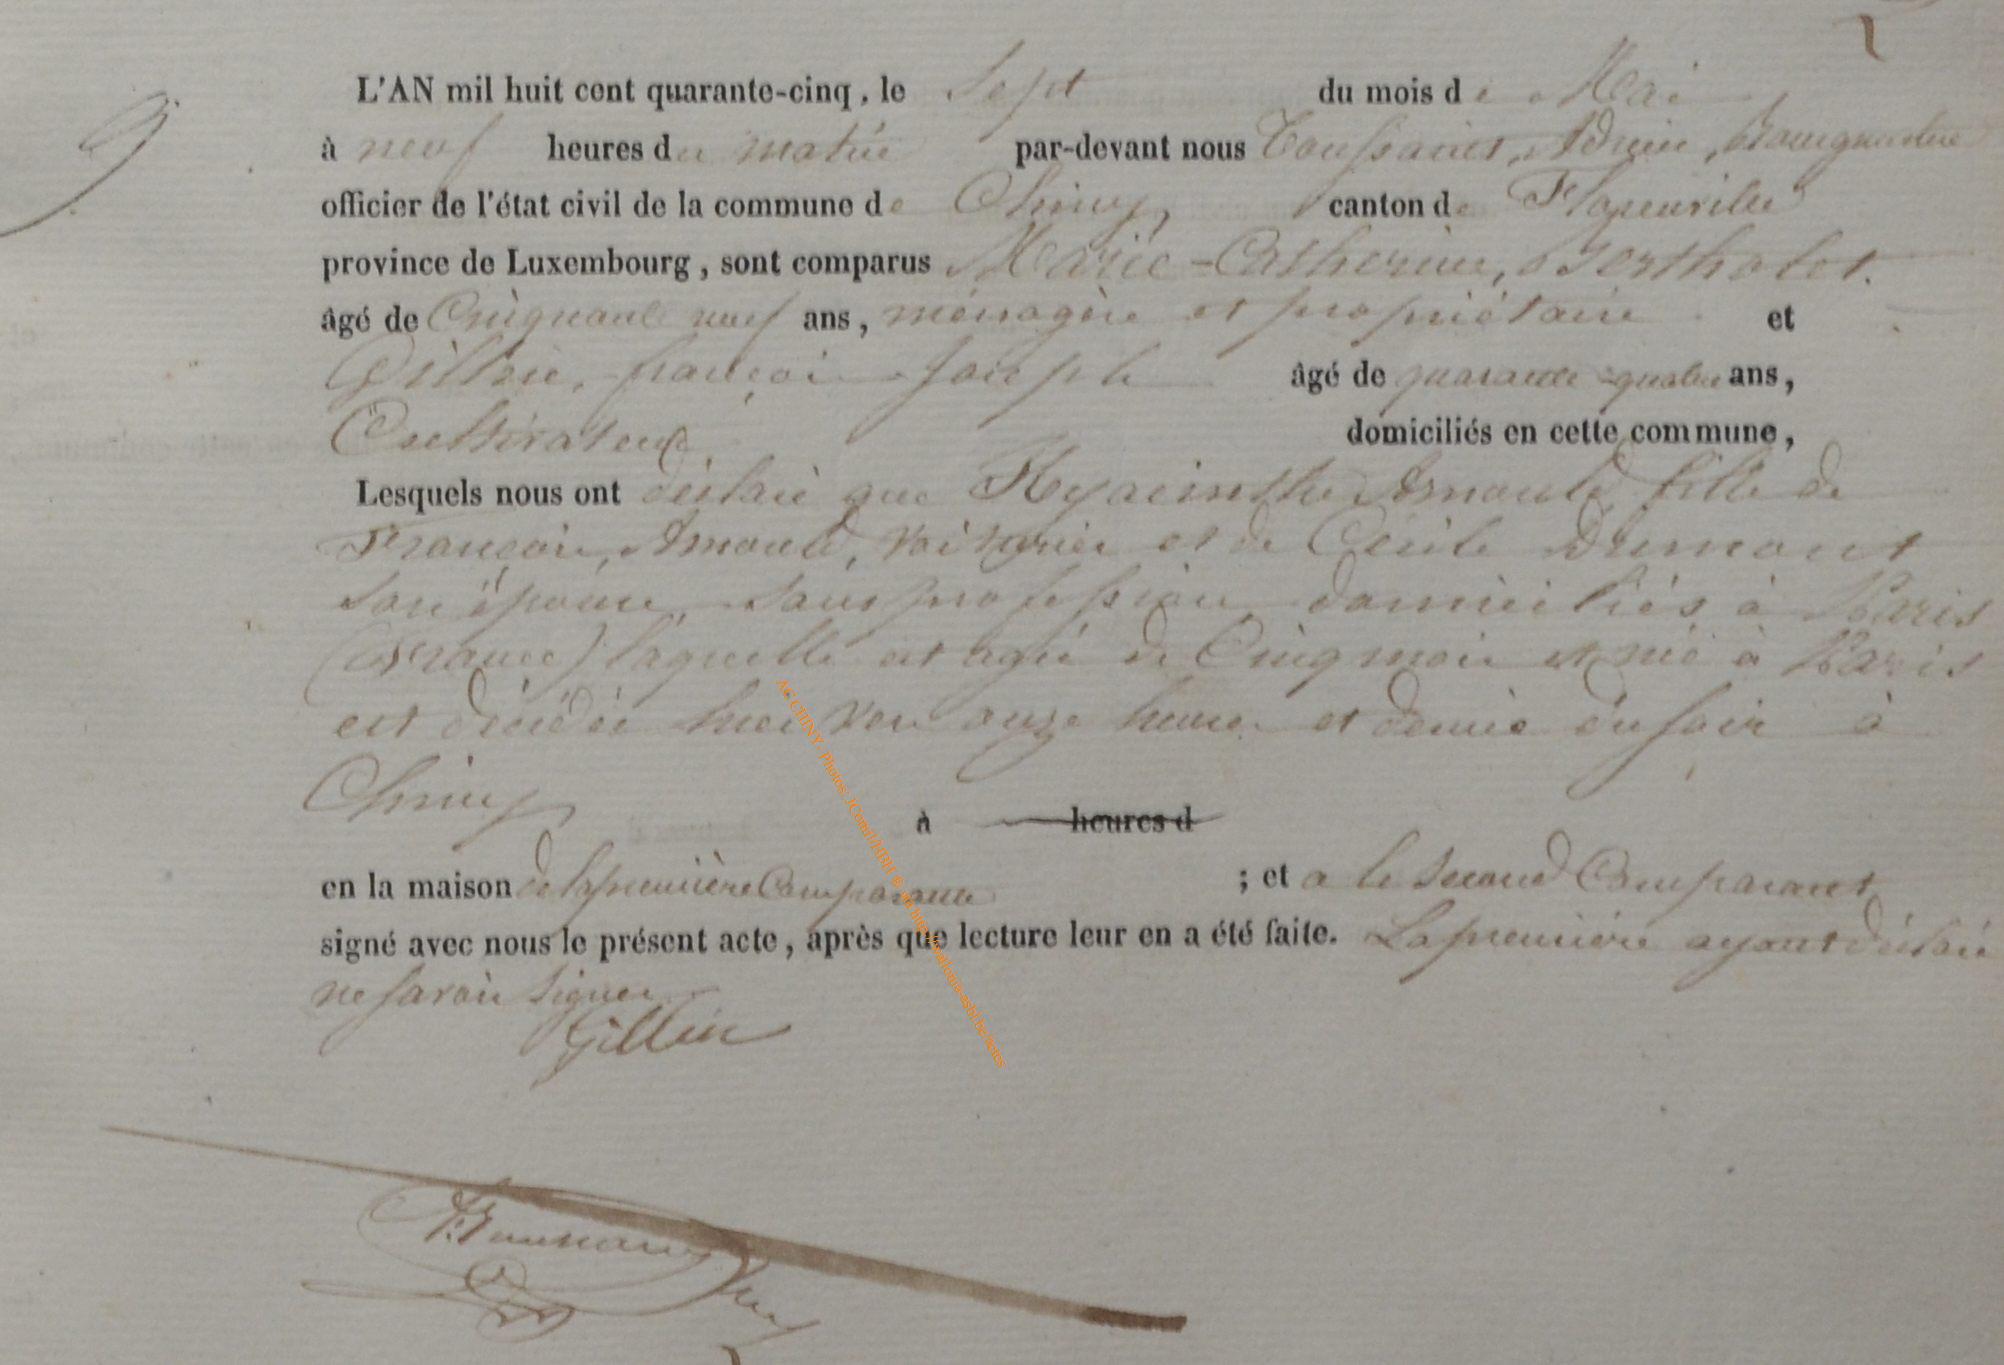 9
L'AN mil huit cent quarante-cinq, le Sept du mois de Mai
à neuf heures du matin par-devant nous Toussaint, Adrien, Bourguemestre
officier de l'état civil de la commune de Chiny, canton de Florenville
province de Luxembourg, sont comparus Marie-Catherine, Bertholet.
âgé de Cinquante neuf ans, ménagère et propriétaire et
Gillin, françois Joseph âgé de quarante quatre ans,
Cultivateur domiciliés en cette commune,
Lesquels nous ont déclaré que Hyacinthe Arnould fille de
François, Arnould, voiturier et de Cécile Dumont
son épouse, sans profession domiciliés à Paris
(France) laquelle est agée de Cinq mois et née à Paris
est décédée hier vers onze heures et demie du soir à
Chiny à heures d
en la maison de la première Comparante ; et a le Second Comparant
signé avec nous le présent acte, après que lecture leur en a été faite. La première ayant déclaré
ne savoir signer
Gillin
AC CHINY - Photos:
Toussaint